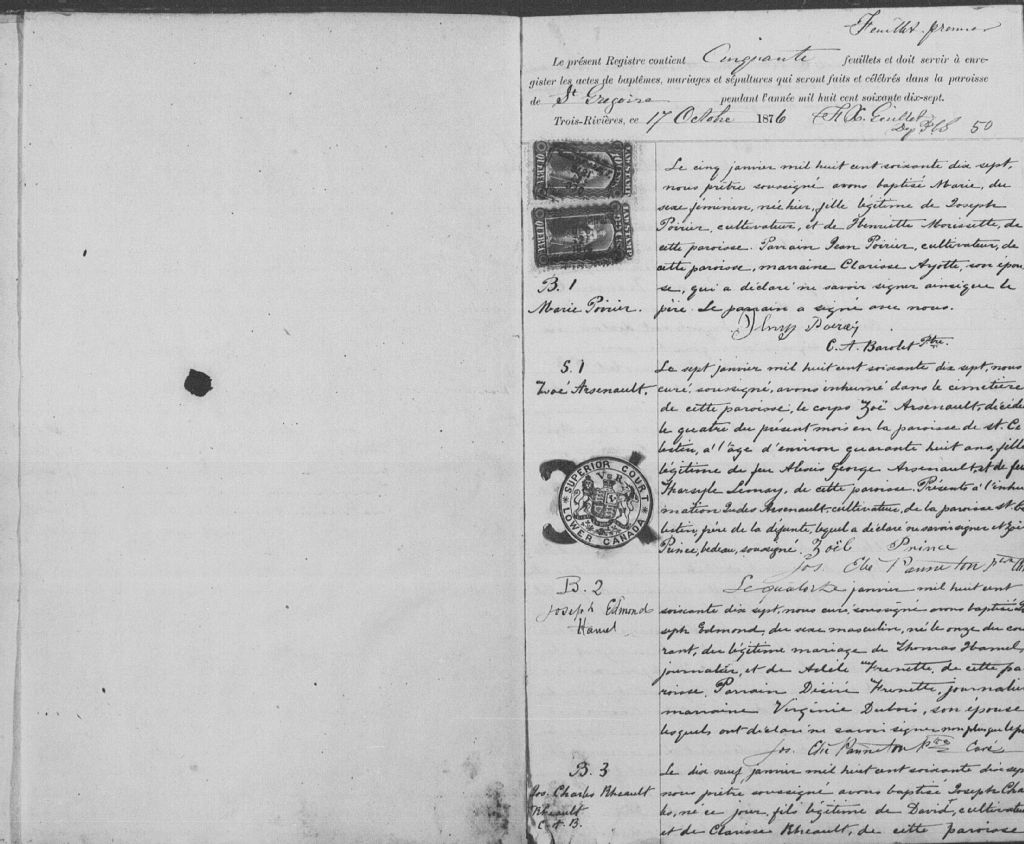 Feuillet premier
Le présent Registre contient Cinquante feuillets et doit servir à enre-
gister les actes de baptêmes, mariages et sépultures qui seront faits et célébrés dans la paroisse
de St Gregoire pendant l'année mil huit cent soixante dix-sept.
Trois-Rivières, ce 17 Octobre 1876 F. X. Guillet
Dep 50
B. 1
Marie Poirier.
Le cinq janvier mil huit cent soixante dix sept,
nous prêtre soussigné avons baptisé Marie, du
sexe féminin, née hier, fille légitime de Joseph
Poirier, cultivateur, et de Henriette Morissette, de
cette paroisse. Parrain Jean Poirier, cultivateur, de
cette paroisse, marraine Clarisse Ayotte, son épou
se, qui a déclaré ne savoir signer ainsique le
père. Le parrain a signé avec nous.
C. A. Barolet Ptre.
S. 1
Zoé Arsenault.
Le sept janvier mil huit cent soixante dix sept, nous
curé soussigné, avons inhumé dans le cimetière
de cette paroisse, le corps Zoë Arsenault, décédée
le quatre du présent mois en la paroisse de St. Cé
lestin, à l'âge d'environ quarante huit ans, fille
légitime de feu Alexis George Arsenault, et de feu
Tharsyle Lemay, de cette paroisse. Présents à l'inhu
mation Judes Arsenault, cultivateur, de la paroisse St. Cé
lestin, père de la défunte, lequel a déclaré ne savoir signer et Zoël
Prince, bedeau, soussigné. Zoël Prince
Jos. Elie Panneton Ptre
SUPERIOR COURT
LOWER CANADA
V R
B. 2
Joseph Edmond
Hamel
Le quatorze janvier mil huit cent
soixante dix sept, nous curé soussigné avons baptisé Jo
seph Edmond, du sexe masculin, né le onze du cou
rant, du légitime mariage de Thomas Hamel,
journalier, et de Adèle Frenette, de cette pa
roisse. Parrain Désiré Frenette, journalier
marraine Virginie Dubois, son épouse
lesquels ont déclaré ne savoir signer non plus que le père
Jos. Elie Panneton Ptre Curé
B. 3
Jos. Charles Rheault
Rheault
C. A. B.
Le dix neuf janvier mil huit cent soixante dix sept
nous prêtre soussigné avons baptisé Joseph Char
les, né ce jour, fils légitime de David, cultivateur
et de Clarisse Rheault, de cette paroisse